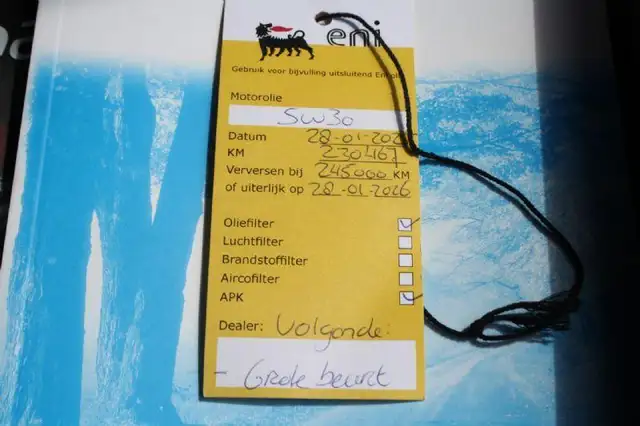 eni
Gebruik voor bijvulling uitsluitend Eni
Motorolie
5W30
Datum 28-01-2025
KM 230467
Verversen bij 245000 KM
of uiterlijk op 28-01-2026
Oliefilter
Luchtfilter
Brandstoffilter
Aircofilter
APK
Dealer: Volgende:
- Grote beurt